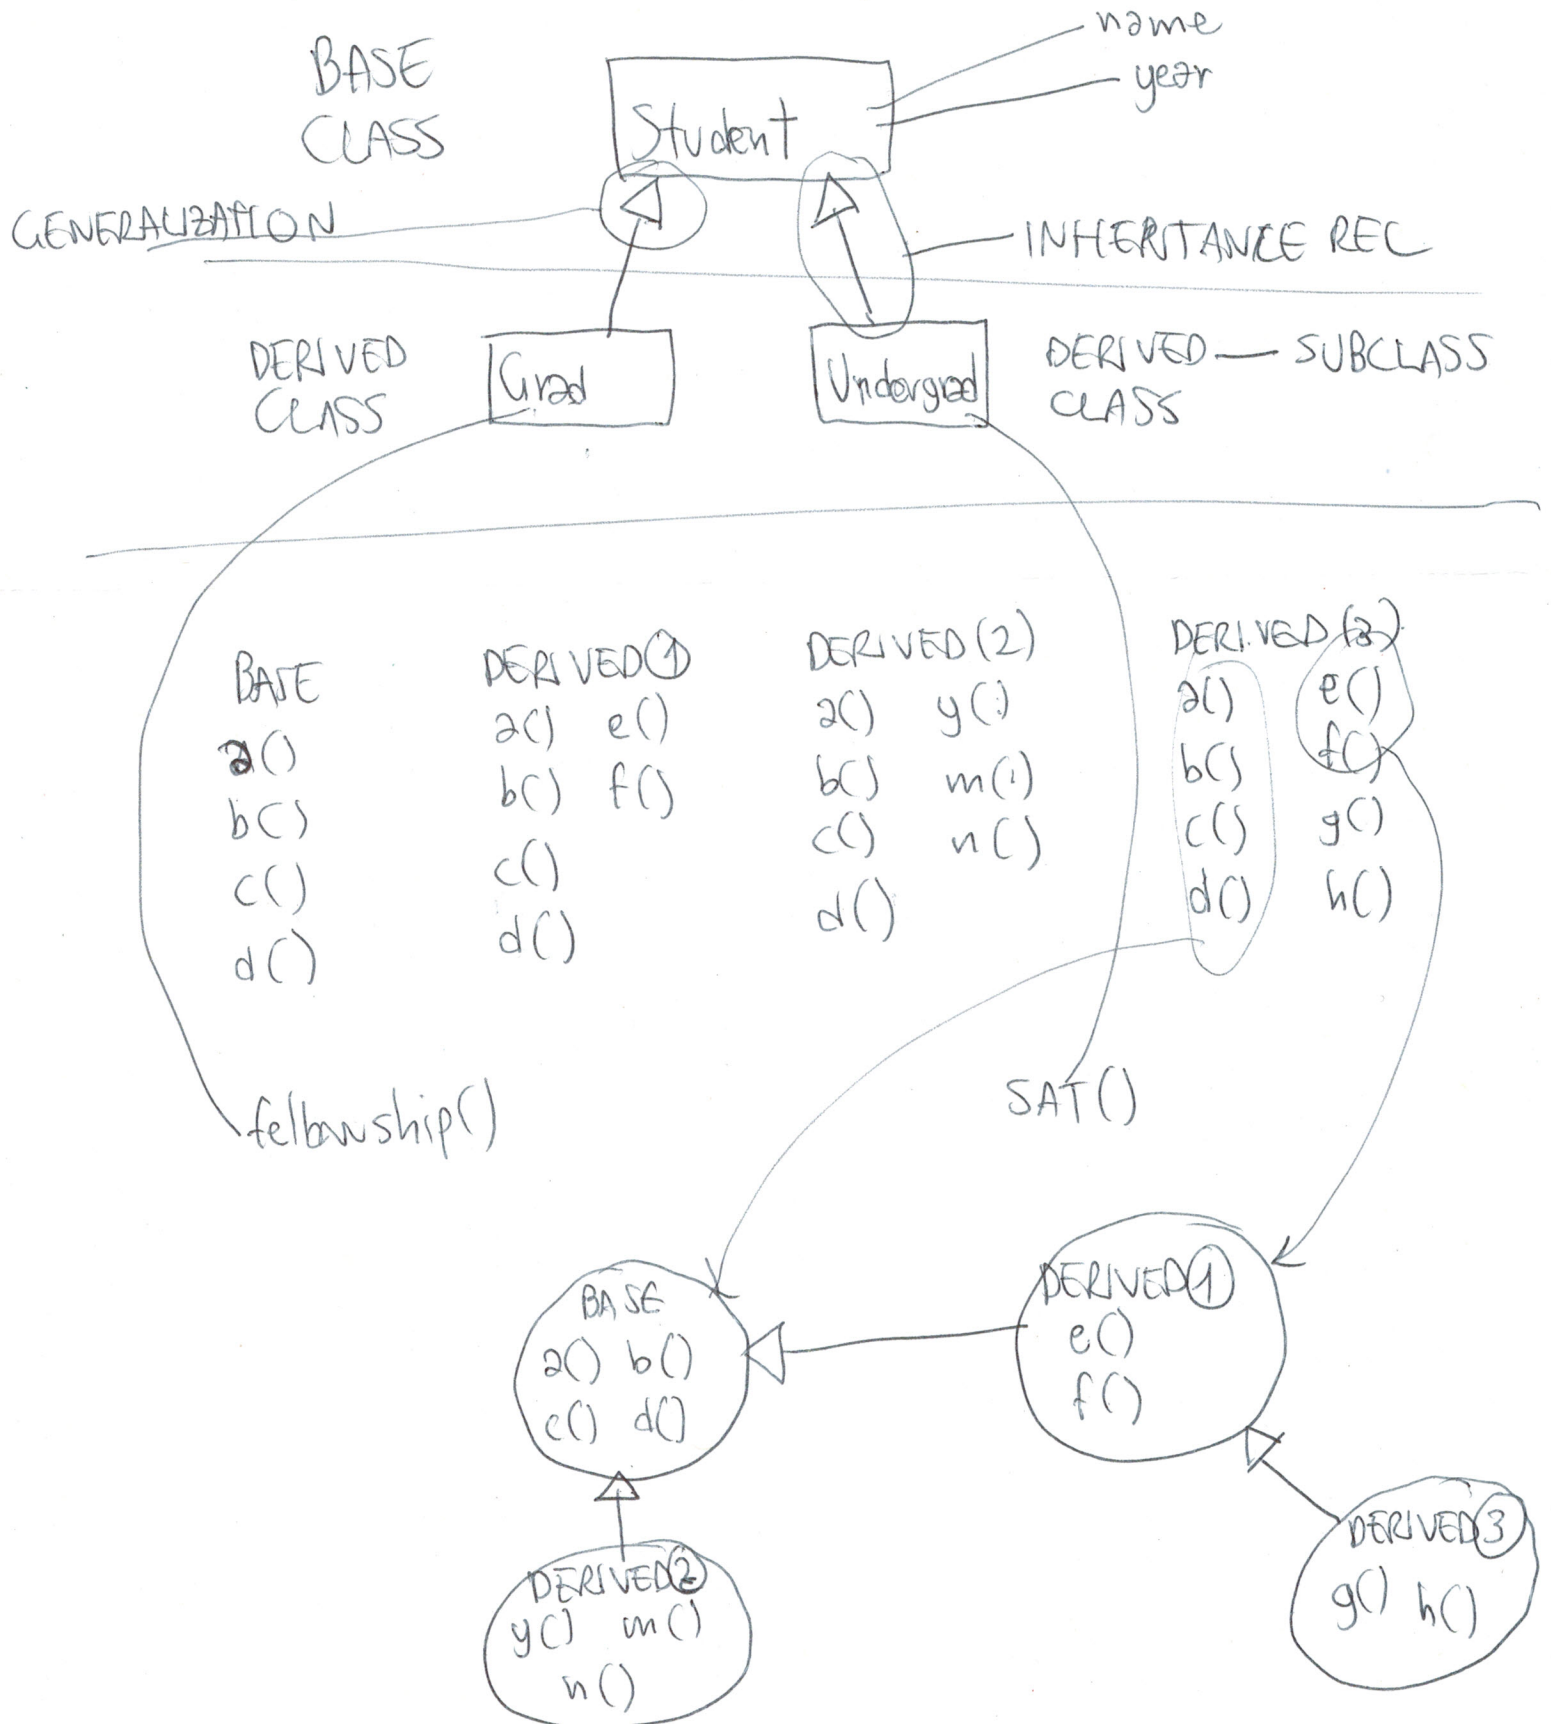 name
year
BASE
CLASS
Student
GENERALIZATION
INHERITANCE REC
DERIVED
CLASS
Grad
Undergrad
DERIVED — SUBCLASS
CLASS
BASE
a()
b()
c()
d()
DERIVED 1
a() e()
b() f()
c()
d()
DERIVED (2)
a() y()
b() m()
c() n()
d()
DERIVED (3)
a() e()
b() f()
c() g()
d() h()
fellowship()
SAT()
BASE
a() b()
c() d()
DERIVED 1
e()
f()
DERIVED 2
y() m()
n()
DERIVED 3
g() h()